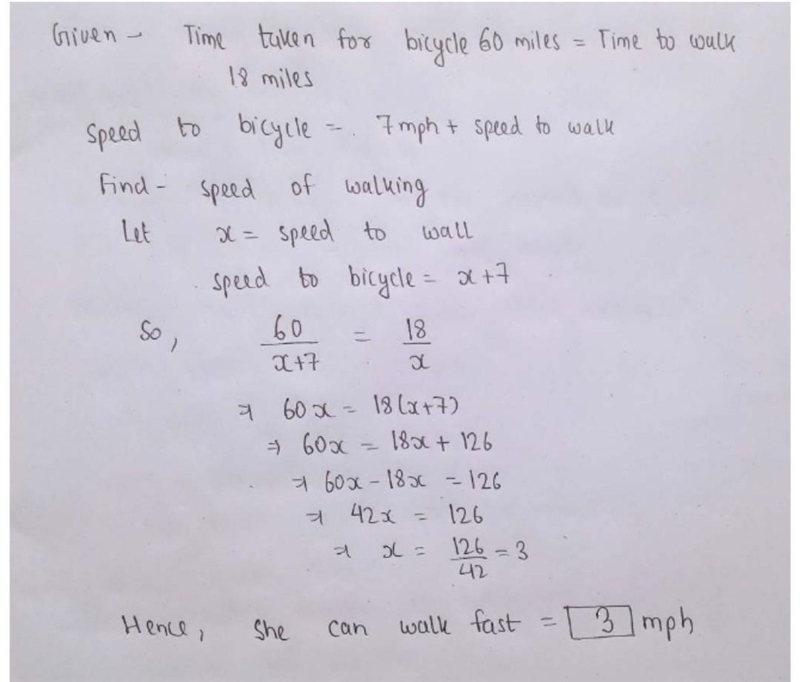 Given - Time taken for bicycle 60 miles = Time to walk
18 miles
Speed to bicycle = . 7mph + speed to walk
Find - speed of walking
Let x = speed to wall
speed to bicycle = x+7
So, 60/(x+7) = 18/x
⇒ 60x = 18(x+7)
⇒ 60x = 18x + 126
⇒ 60x - 18x = 126
⇒ 42x = 126
⇒ x = 126/42 = 3
Hence, she can walk fast = 3 mph